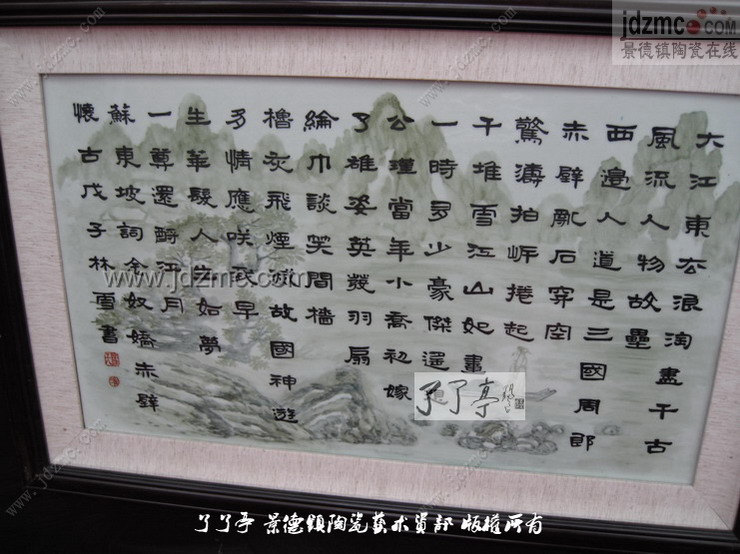 jdzmc.com
景德镇陶瓷在线
大江東去浪淘盡千古
風流人物故壘
西邊人道是三國周郎
赤壁亂石穿空
驚濤拍岸捲起
千堆雪江山如畫
一時多少豪傑遥
公瑾當年小喬初嫁
了雄姿英發羽扇
綸巾談笑間檣
櫓灰飛煙滅故國神遊
多情應咲我早
生華髮人生如夢
一尊還酹江月
蘇東坡詞念奴嬌赤壁
懷古戊子林雪書
www.jdzmc.com
了了亭
了了亭 景德镇陶瓷艺术资部 版权所有